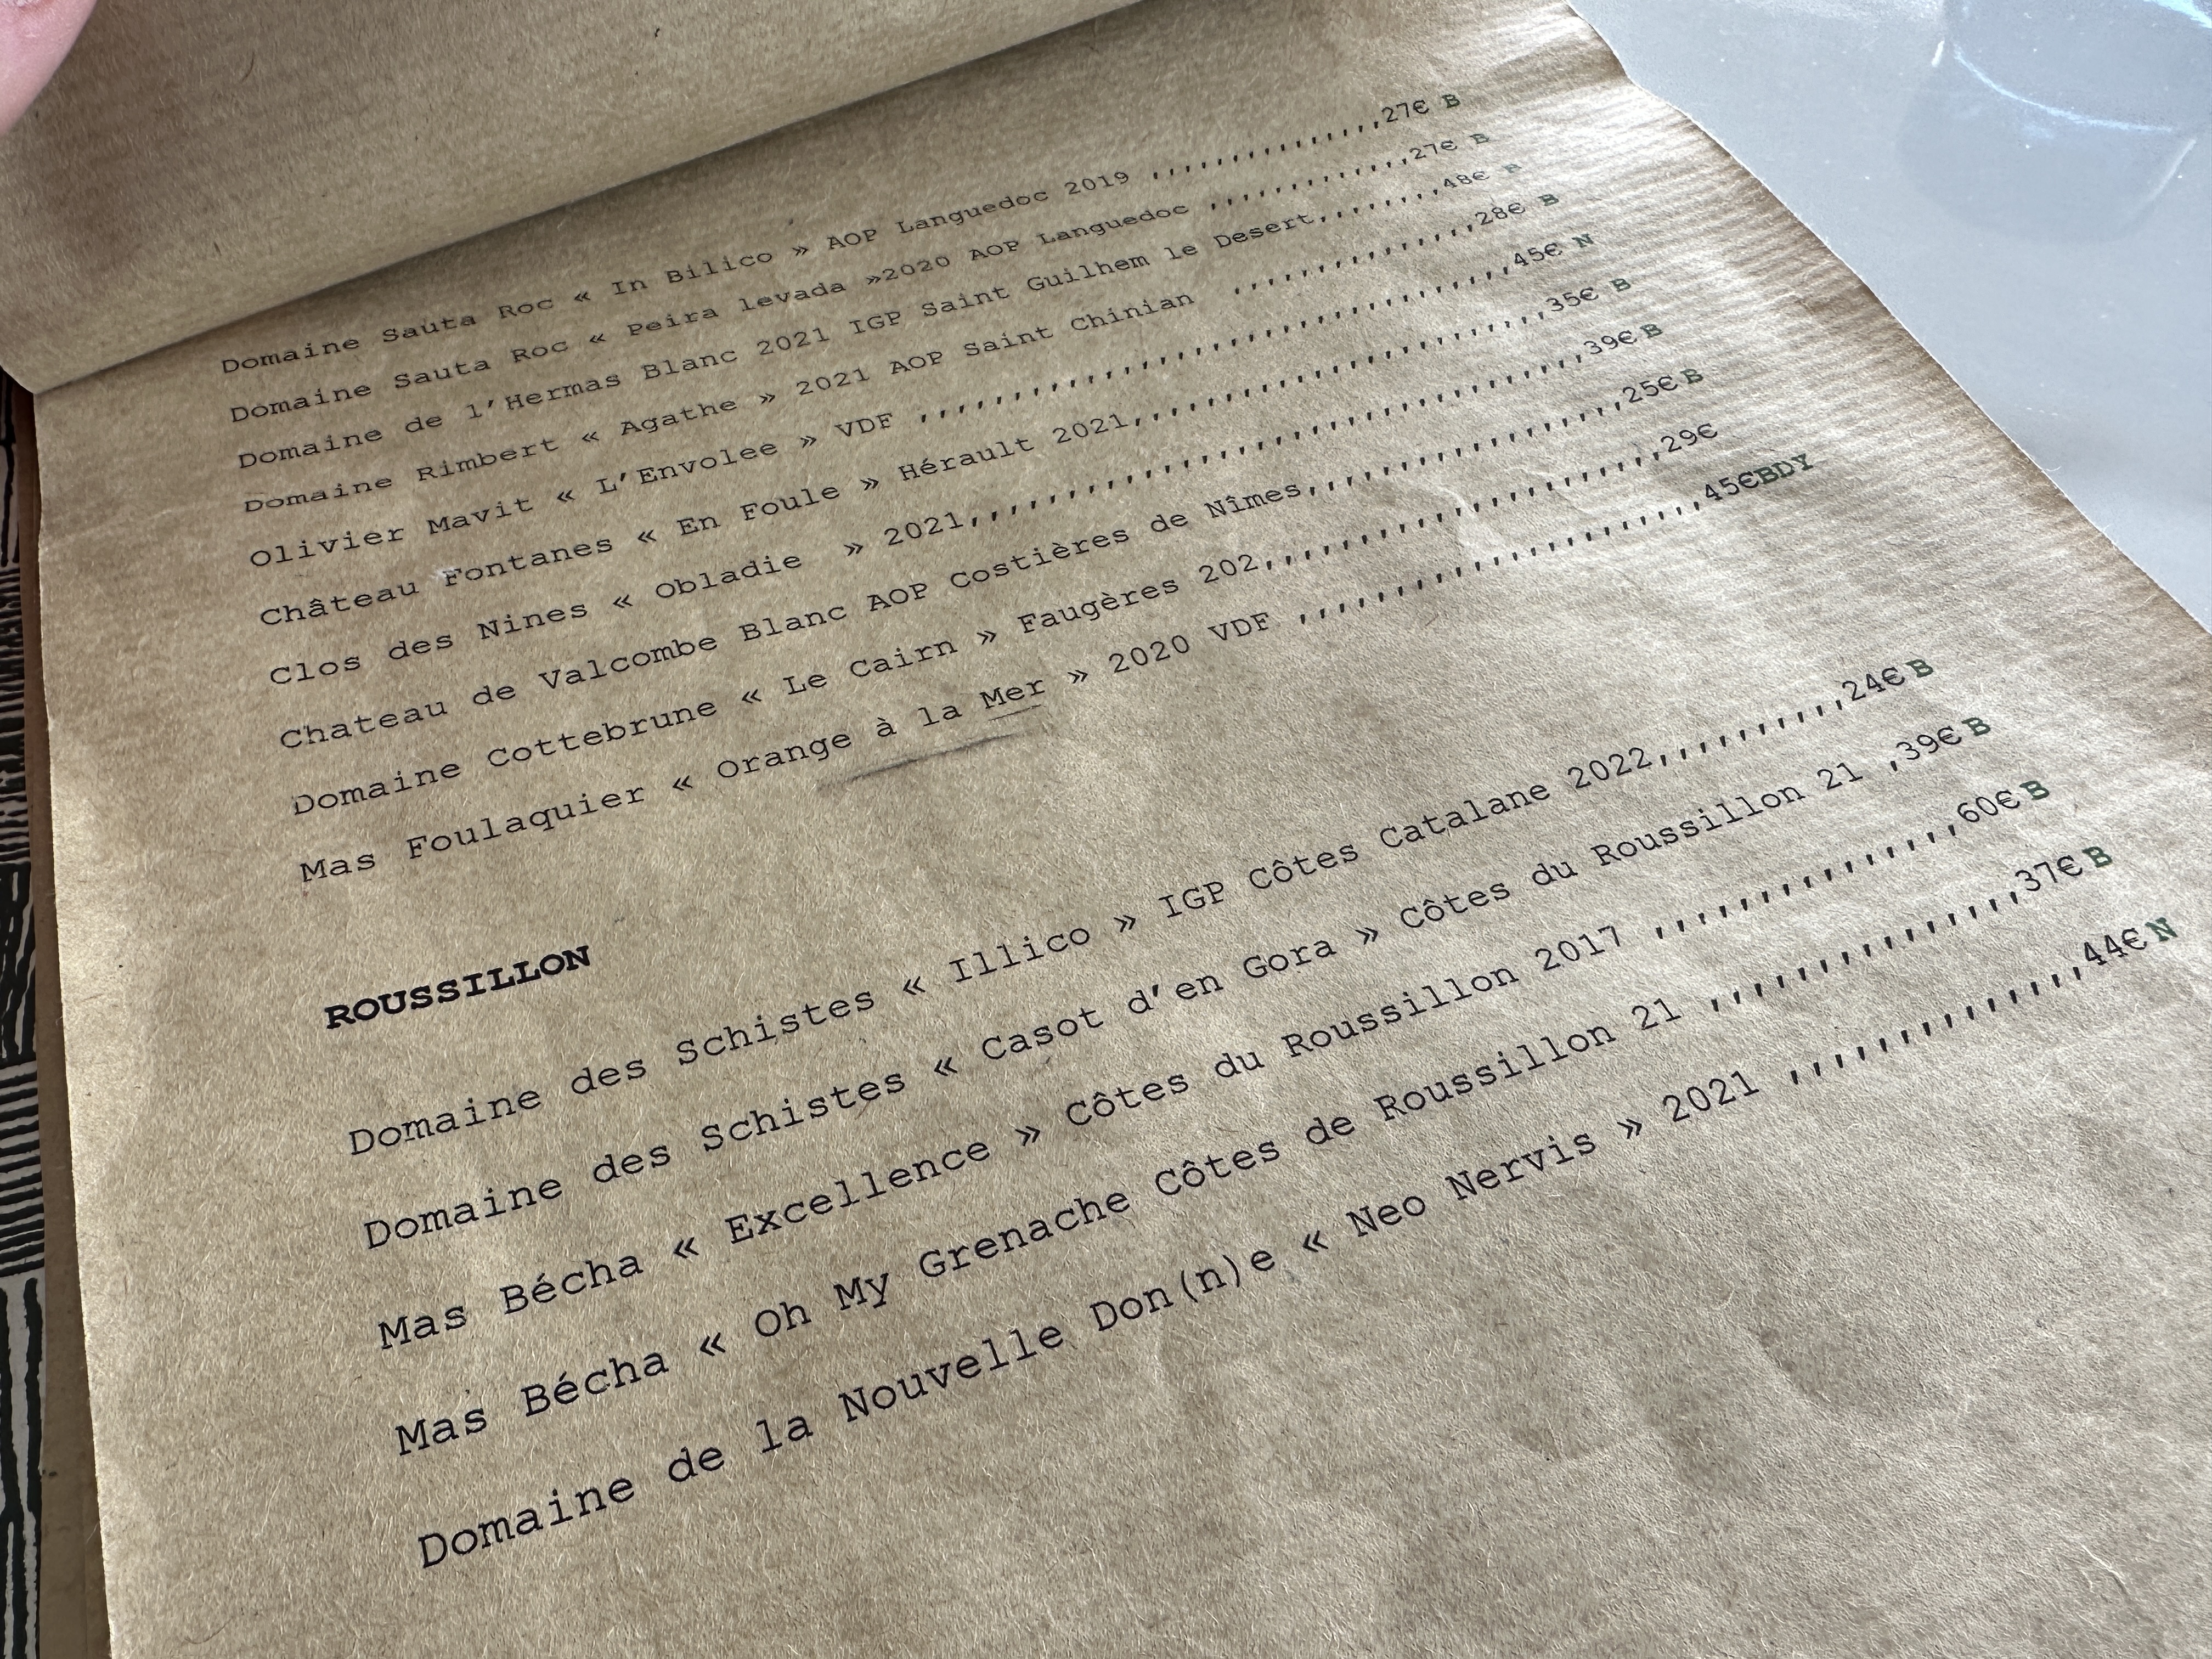 Domaine Sauta Roc « In Bilico » AOP Languedoc 2019 ,,,,,,,,,,,,,,,27€ B
Domaine Sauta Roc « Peira levada »2020 AOP Languedoc ,,,,,,,,,,,,,27€ B
Domaine de l'Hermas Blanc 2021 IGP Saint Guilhem le Desert,,,,,,,,48€ B
Domaine Rimbert « Agathe » 2021 AOP Saint Chinian ,,,,,,,,,,,,,,,28€ B
Olivier Mavit « L'Envolee » VDF ,,,,,,,,,,,,,,,,,,,,,,,,,,,,,,,45€ N
Château Fontanes « En Foule » Hérault 2021,,,,,,,,,,,,,,,,,,,,,,35€ B
Clos des Nines « Obladie » 2021,,,,,,,,,,,,,,,,,,,,,,,,,,,,,,39€B
Chateau de Valcombe Blanc AOP Costières de Nîmes,,,,,,,,,,,,,,,,25€B
Domaine Cottebrune « Le Cairn » Faugères 202,,,,,,,,,,,,,,,,,,,29€
Mas Foulaquier « Orange à la Mer » 2020 VDF ,,,,,,,,,,,,,,,,,,,45€BDY
ROUSSILLON
Domaine des Schistes « Illico » IGP Côtes Catalane 2022,,,,,,,,,,24€B
Domaine des Schistes « Casot d'en Gora » Côtes du Roussillon 21 ,39€B
Mas Bécha « Excellence » Côtes du Roussillon 2017 ,,,,,,,,,,,,,,,60€B
Mas Bécha « Oh My Grenache Côtes de Roussillon 21 ,,,,,,,,,,,,,,,37€B
Domaine de la Nouvelle Don(n)e « Neo Nervis » 2021 ,,,,,,,,,,,,,,44€N